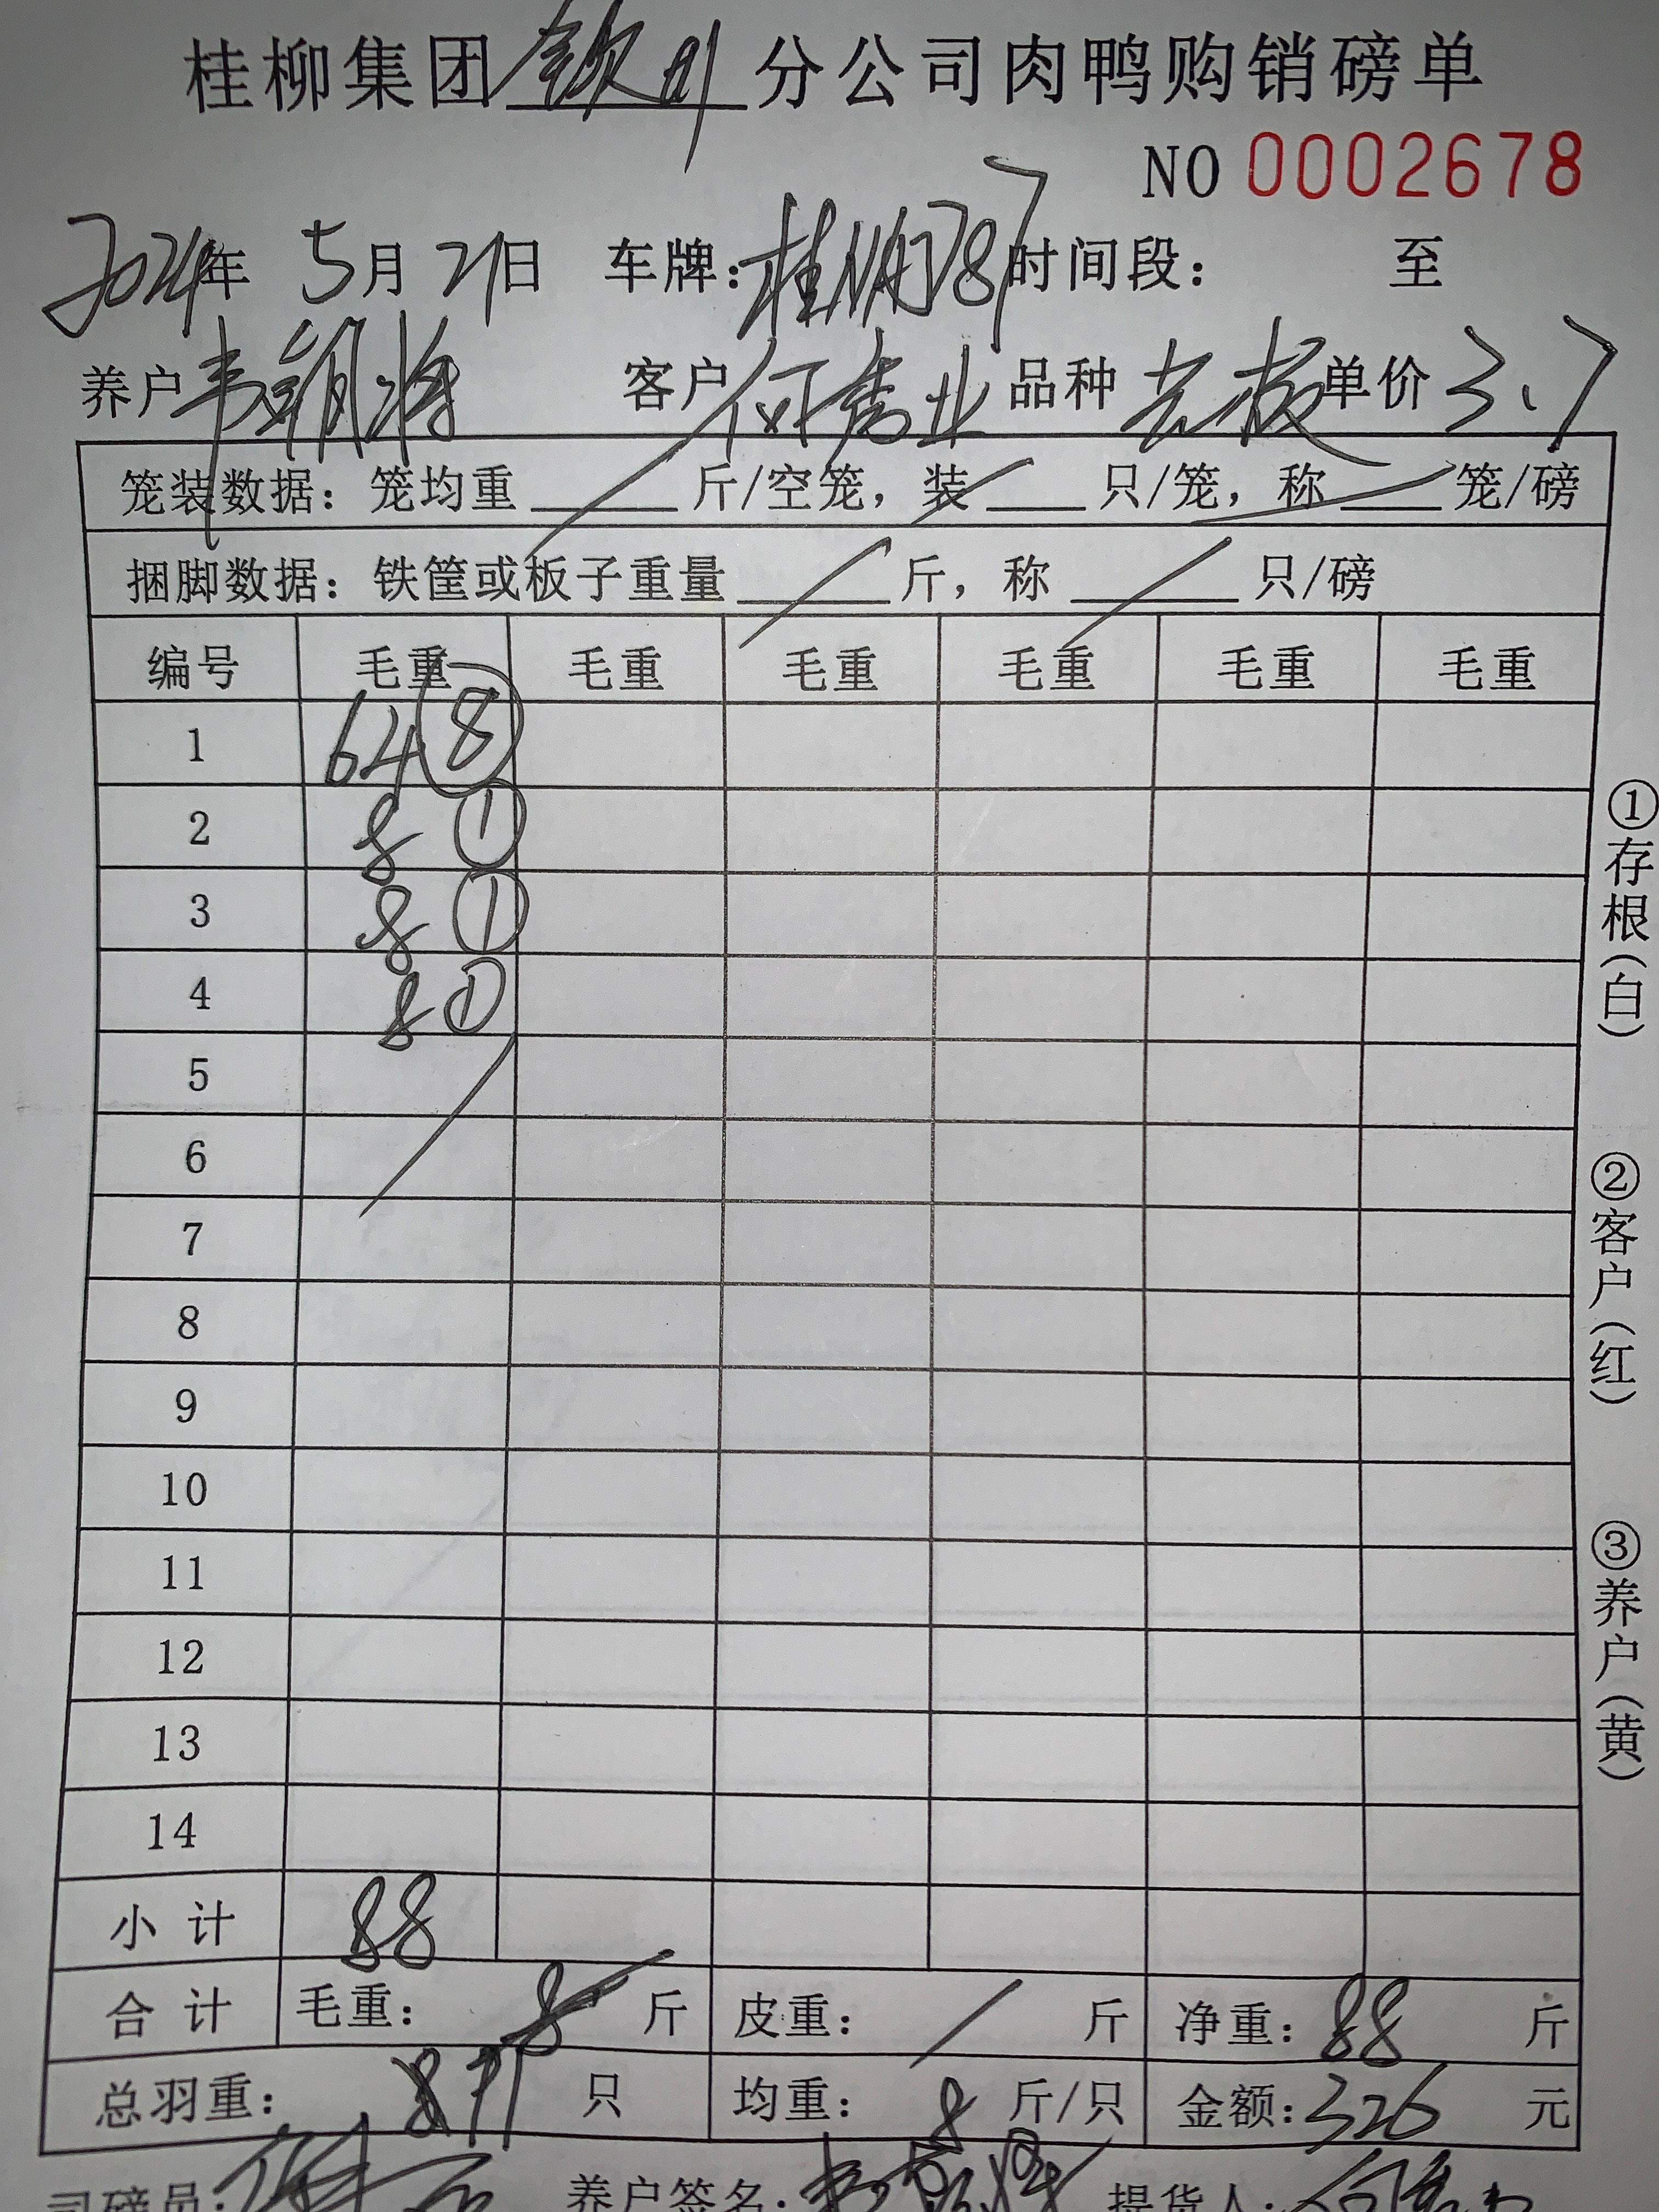 桂柳集团钦州分公司肉鸭购销磅单
NO 0002678
2024年 5月 21日 车牌: 时间段: 至
养户 客户 何秀业 品种 单价 3.7
笼装数据: 笼均重 斤/空笼, 装 只/笼, 称 笼/磅
捆脚数据: 铁筐或板子重量 斤, 称 只/磅
编号 毛重 毛重 毛重 毛重 毛重 毛重
1 64 ⑧
2 8 ①
3 8 ①
4 8 ①
5
6
7
8
9
10
11
12
13
14
小计 88
合计 毛重: 斤 皮重: / 斤 净重: 88 斤
总羽重: 11 只 均重: 8 斤/只 金额: 326 元
司磅员: 养户签名: 提货人:
①存根(白)
②客户(红)
③养户(黄)